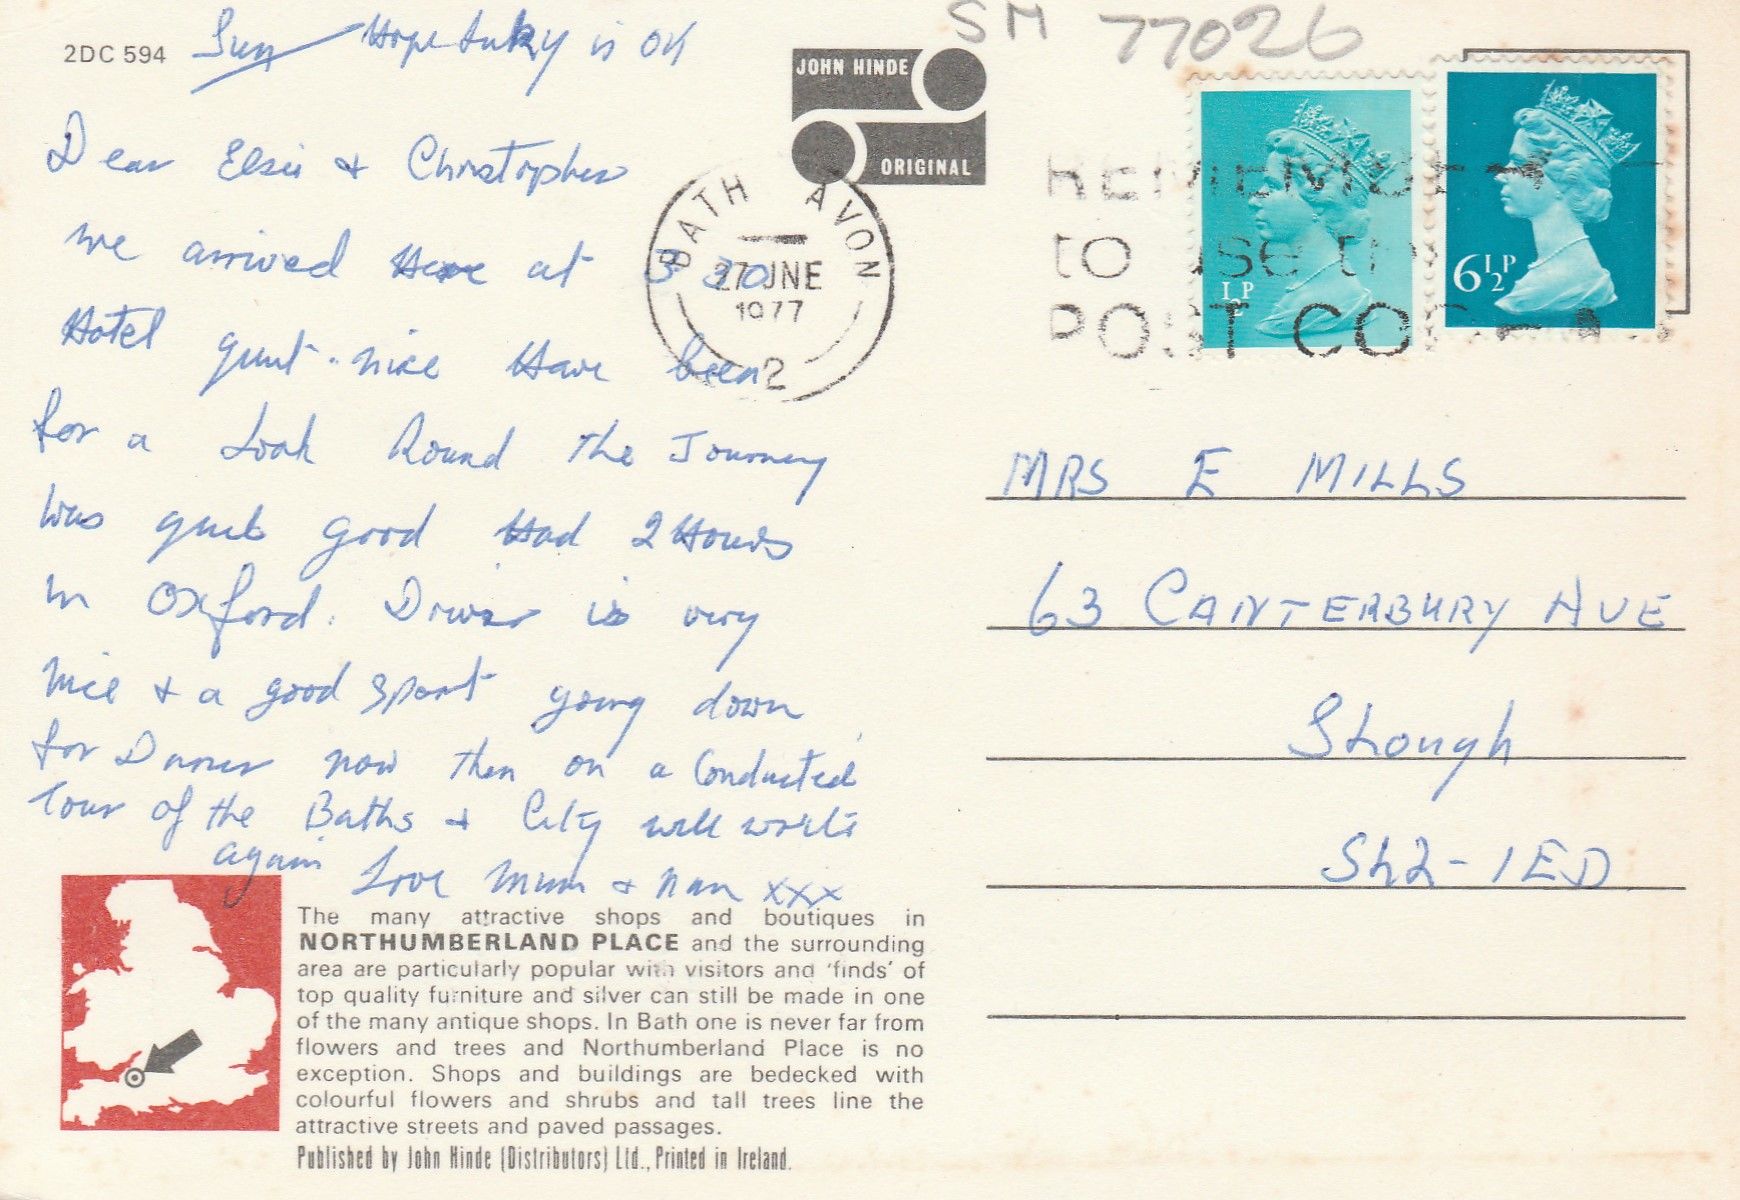 2DC 594
Sun Hope is OK
SM 77026
JOHN HINDE
ORIGINAL
BATH AVON
27 JNE
1977
2
REMEMBER
to use the
POST CODE
½P
6½P
Dear Elsie & Christopher
we arrived Here at 5 30
Hotel quit nice Have been
for a Look Round The Journey
was quit good Had 2 Hours
in Oxford. Driver is very
nice & a good sport going down
for Dinner now then on a Conducted
Tour of the Baths & City will write
again Love Mum & Nan xxx
MRS E MILLS
63 CANTERBURY AVE
Slough
SL2-1ED
The many attractive shops and boutiques in
NORTHUMBERLAND PLACE and the surrounding
area are particularly popular with visitors and 'finds' of
top quality furniture and silver can still be made in one
of the many antique shops. In Bath one is never far from
flowers and trees and Northumberland Place is no
exception. Shops and buildings are bedecked with
colourful flowers and shrubs and tall trees line the
attractive streets and paved passages.
Published by John Hinde (Distributors) Ltd., Printed in Ireland.